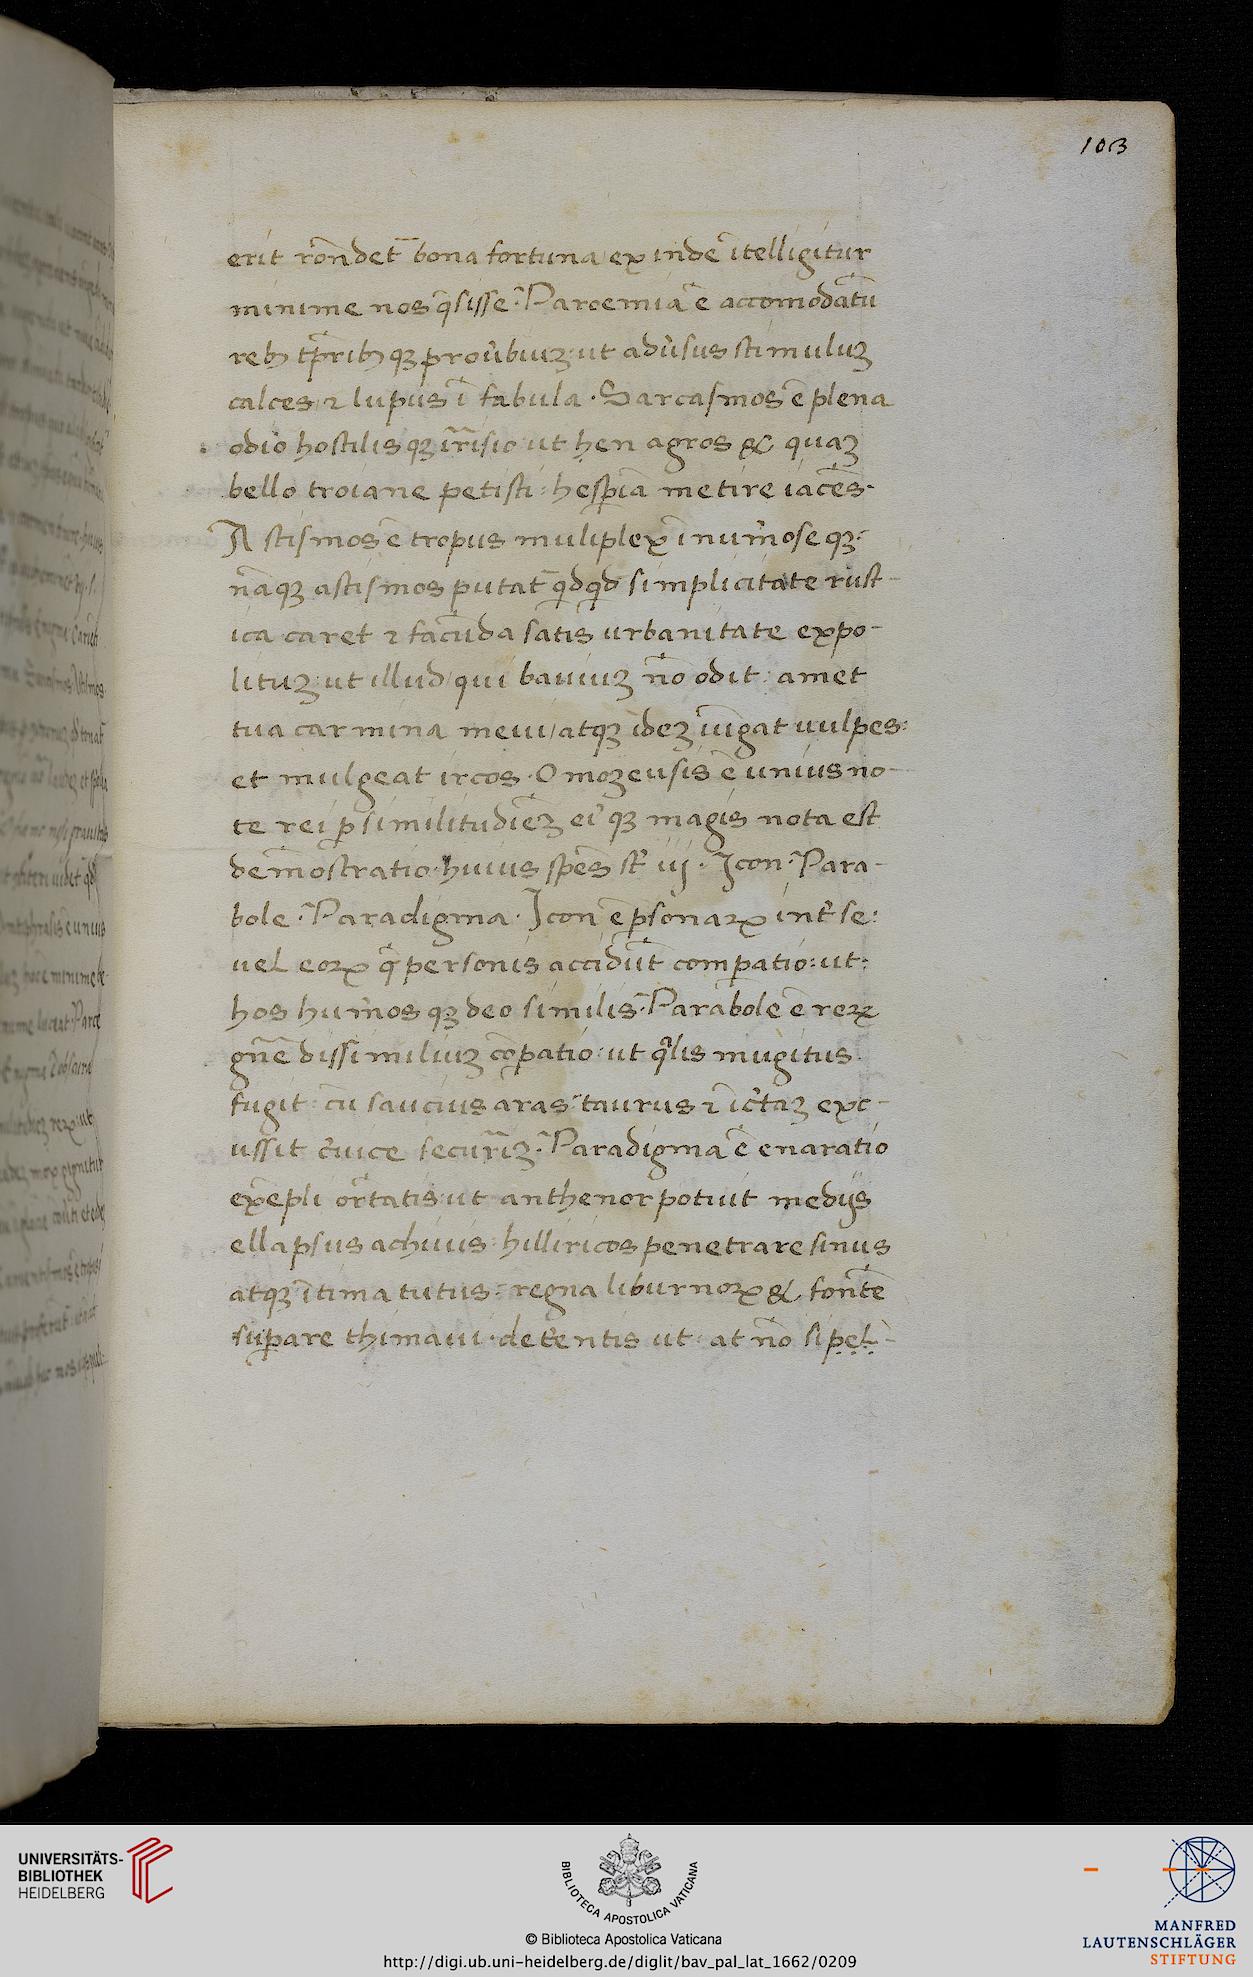 103
erit rōndet̄ bona fortuna / ex inde ītelligitur
minime nos q̄sisse · Paroemia ē accomodātū
reb; t̄p̄rib; qȝ prou̅biuȝ : ut adu̅sus stimuluȝ
calces / ⁊ lupus ī fabula · Sarcasmos ē plena
odio hostilisqȝ ir̄risio ut hen agros & quaȝ
bello troiane petisti : hesp̄iā metire iacēs ·
Astismos ē tropus muliplex īnum̄oseqȝ ·
nāqȝ astismos putat̄ qdqd simplicitate rust-
ica caret ⁊ facūda satis urbanitate expo-
lituȝ : ut illud / qui bauiuȝ nō odit : amet
tua carmina meui / atqȝ ideȝ iūgat uulpes :
et mulgeat ircos · Omozeusis ē unius no-
te rei p̱ similitudiēȝ ei̓ qȝ magis nota est
demōstratio · huius spēs st̄ iij · Icon · Para-
bole · Paradigma · Icon ē p̱sonaꝝ int̄ se :
uel eoꝝ q̄ personis accidūt comp̱atio : ut :
hos hum̄osqȝ deo similis · Parabole ē reꝝ
gn̄e dissimiliuȝ cōp̱atio : ut q̄lis mugitus
fugit : cū saucius aras : taurus ⁊ īc̄taȝ exc-
ussit c̄uice secur̄iȝ · Paradigma ē enaratio
exēpli or̄tatis : ut anthenor potiut medijs
ellapsus achiuis : hilliricos penetrare sinus
atqȝ ītima tutus : regna liburnoꝝ & fontē
sup̱are thimaui · det̄entis ut : at nō si pel-
UNIVERSITÄTS-
BIBLIOTHEK
HEIDELBERG
BIBLIOTECA APOSTOLICA VATICANA
© Biblioteca Apostolica Vaticana
http://digi.ub.uni-heidelberg.de/diglit/bav_pal_lat_1662/0209
MANFRED
LAUTENSCHLÄGER
STIFTUNG